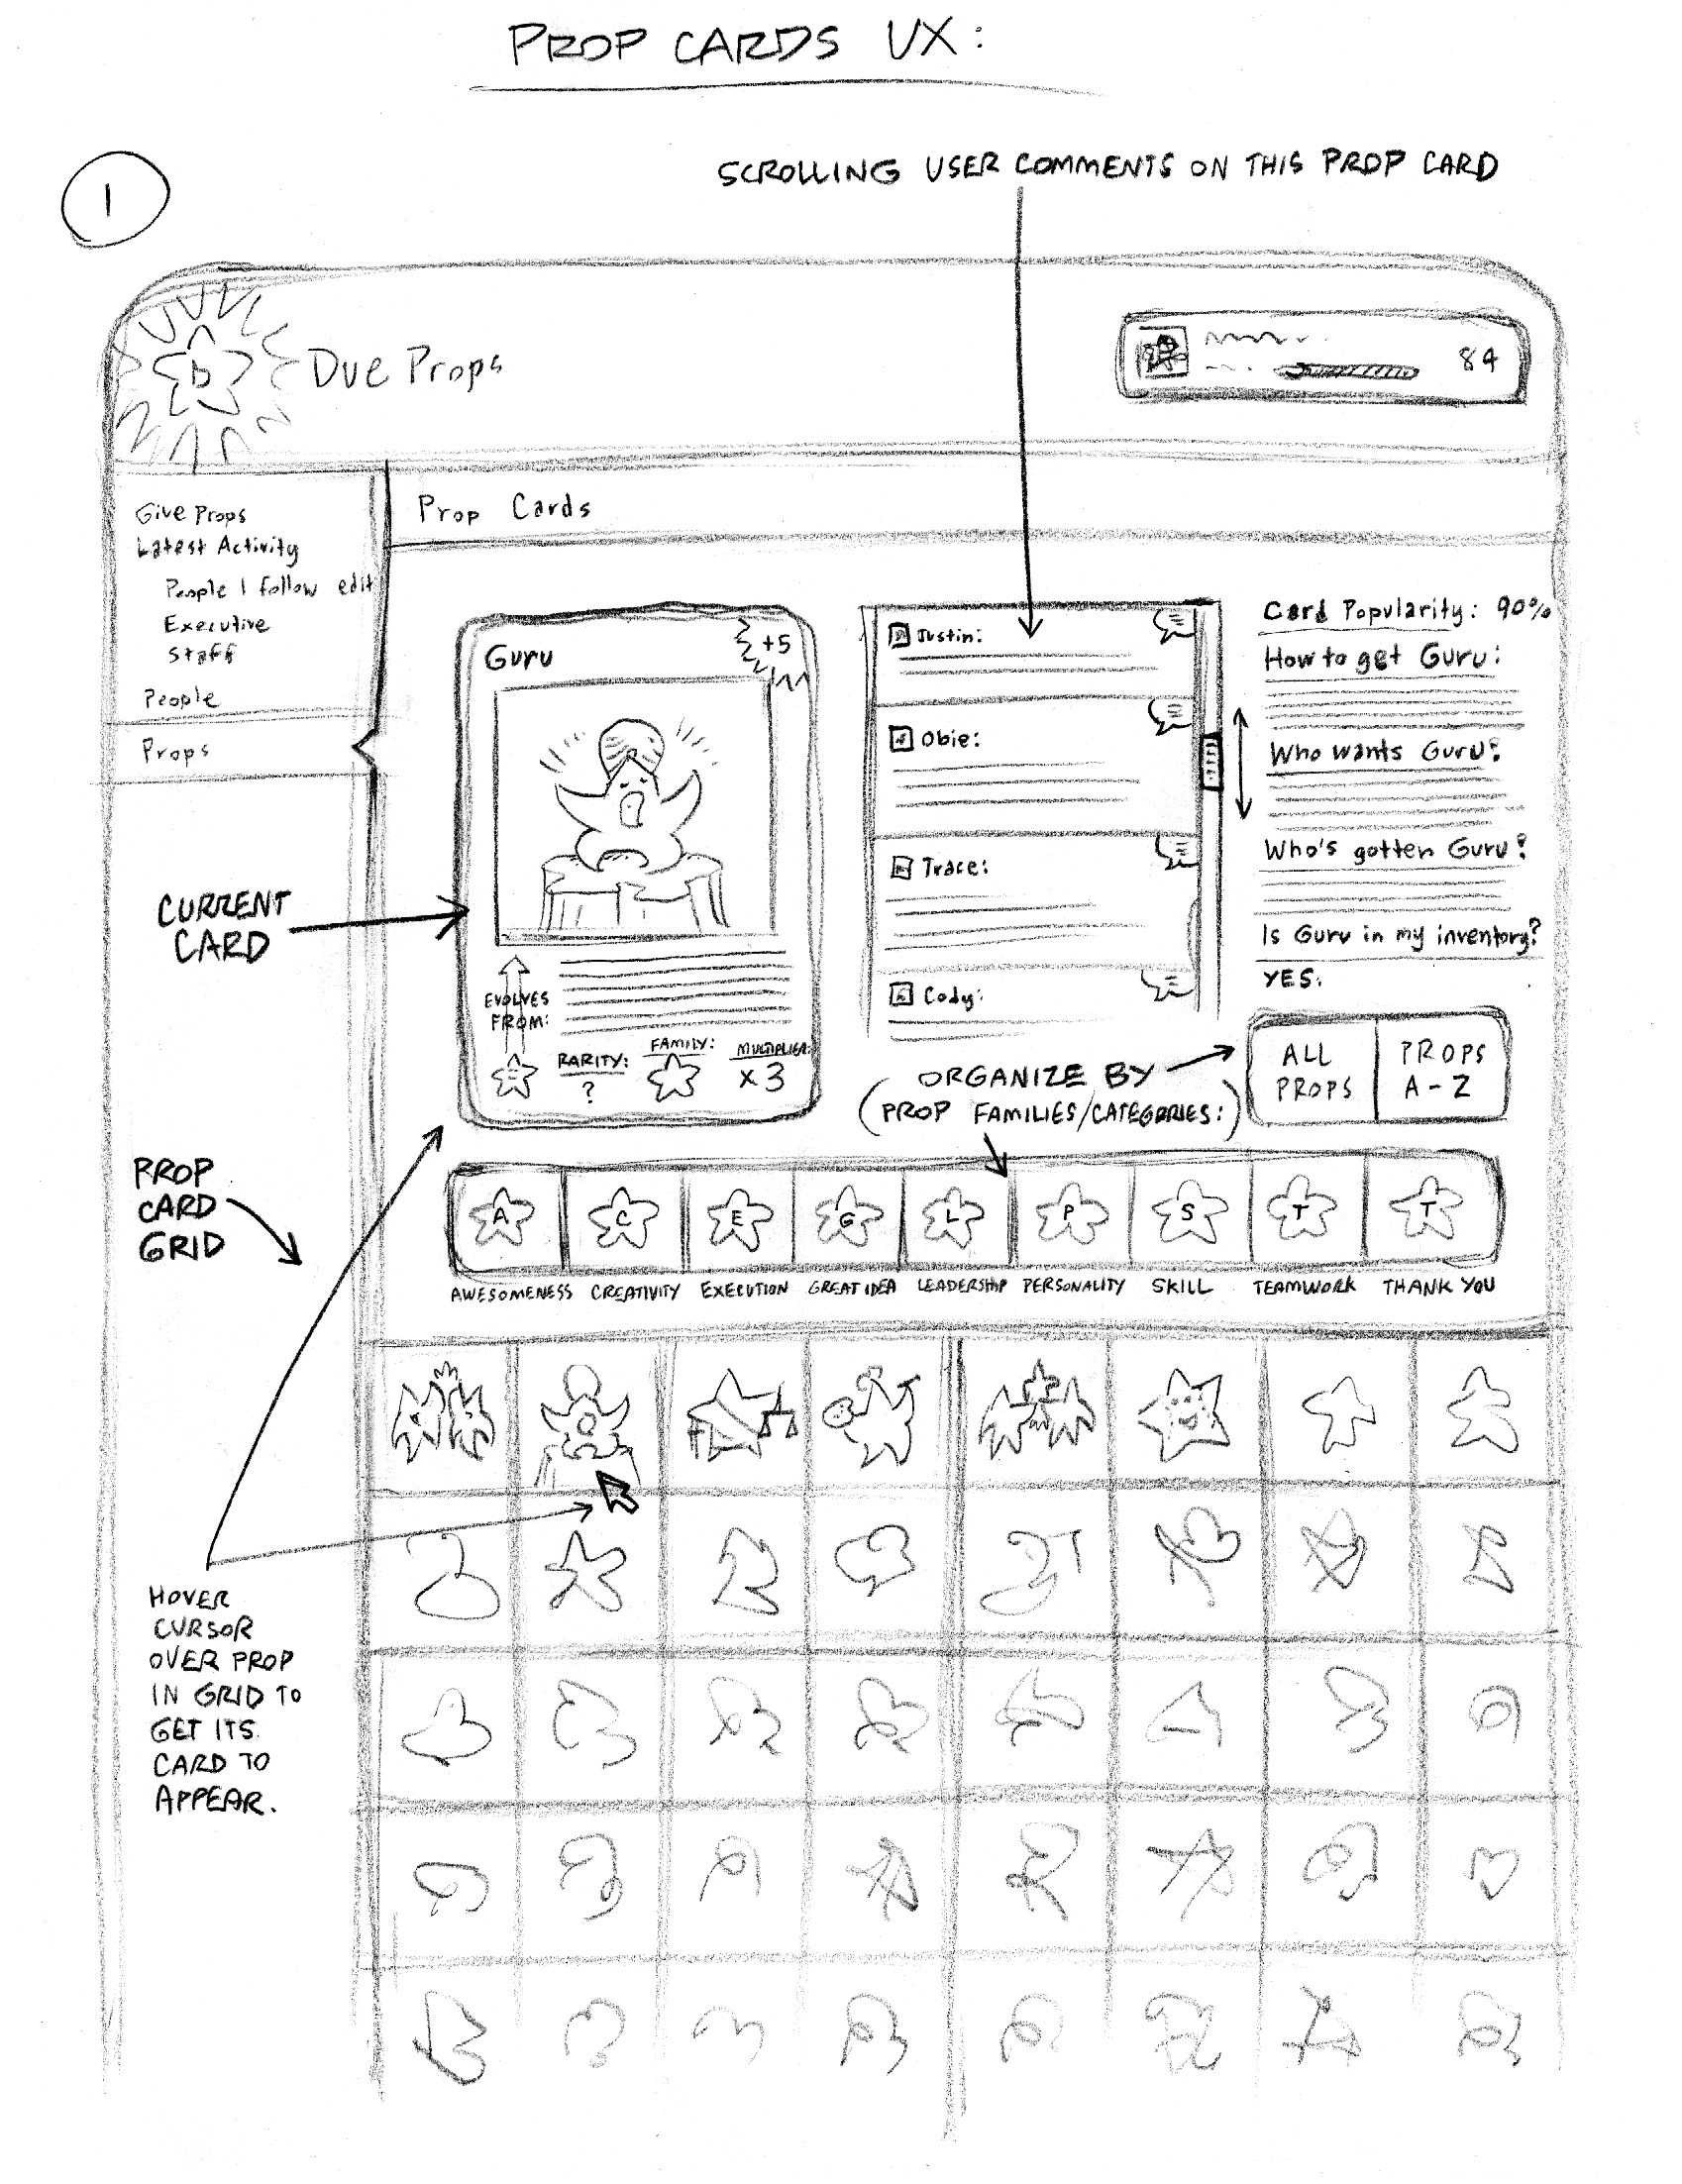 PROP CARDS UX:
1
SCROLLING USER COMMENTS ON THIS PROP CARD
Due Props
84
Give Props
Latest Activity
People I follow edit
Executive
Staff
People
Props
Prop Cards
CURRENT
CARD
Guru
+5
EVOLVES
FROM:
RARITY:
?
FAMILY:
MULTIPLIER:
x3
Justin:
Obie:
Trace:
Cody:
Card Popularity: 90%
How to get Guru:
Who wants Guru?
Who's gotten Guru?
Is Guru in my inventory?
YES.
ORGANIZE BY
(PROP FAMILIES/CATEGORIES:)
ALL
PROPS
PROPS
A-Z
PROP
CARD
GRID
A C E G L P S T T
AWESOMENESS CREATIVITY EXECUTION GREAT IDEA LEADERSHIP PERSONALITY SKILL TEAMWORK THANK YOU
HOVER
CURSOR
OVER PROP
IN GRID TO
GET ITS
CARD TO
APPEAR.